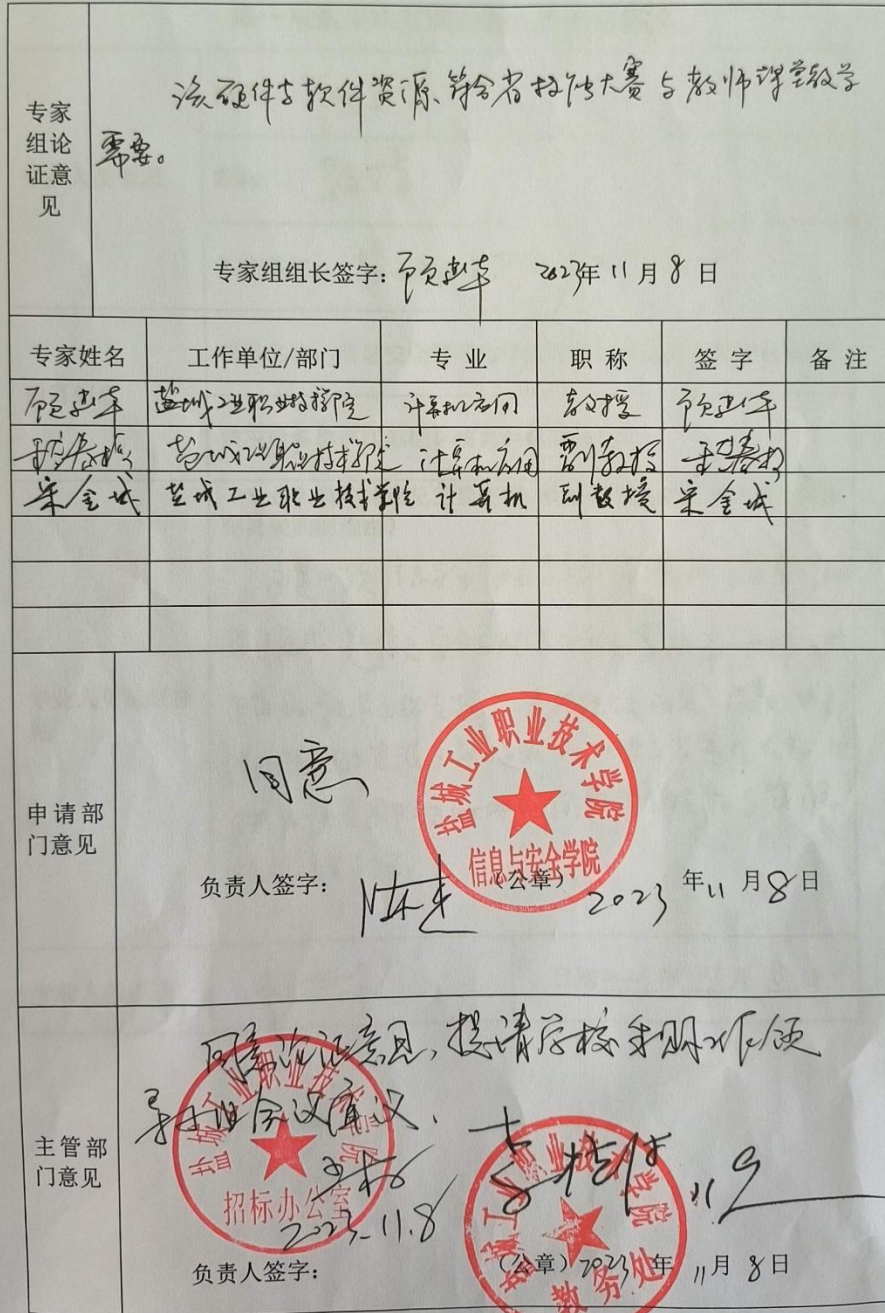 专家
组论
证意
见
该硬件与软件资源、符合省技能大赛与教师课堂教学
需要。
专家组组长签字：顾建华 2023年 11月 8日
专家姓名 工作单位/部门 专 业 职 称 签 字 备 注
顾建华 盐城工业职业技术学院 计算机应用 教授 顾建华
盐城工业职业技术学院 计算机应用 副教授
宋金城 盐城工业职业技术学院 计算机 副教授 宋金城
申请部
门意见
同意
盐城工业职业技术学院
信息与安全学院
负责人签字： （公章） 2023 年 11 月 8 日
主管部
门意见
同意论证意见，提请学校采购工作领
导小组会议审议，
盐城工业职业技术学院
招标办公室
2023.11.8
盐城工业职业技术学院
教务处
11.8
负责人签字： （公章） 2023 年 11 月 8 日